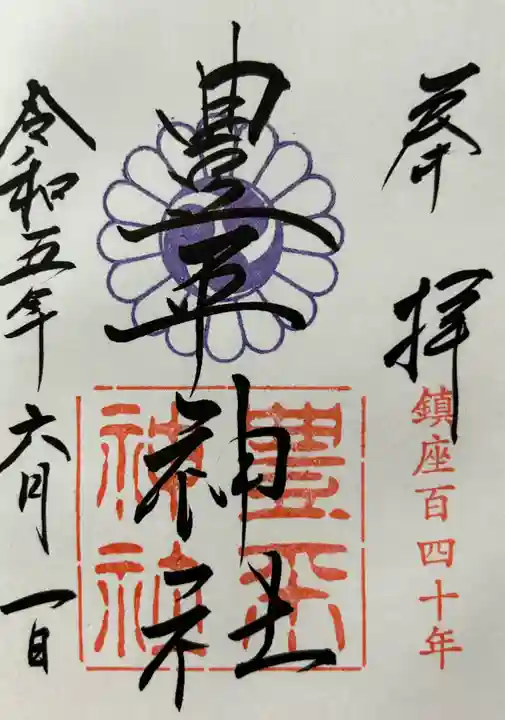 奉拝
鎮座百四十年
豊平神社
豊平神社
令和五年六月一日